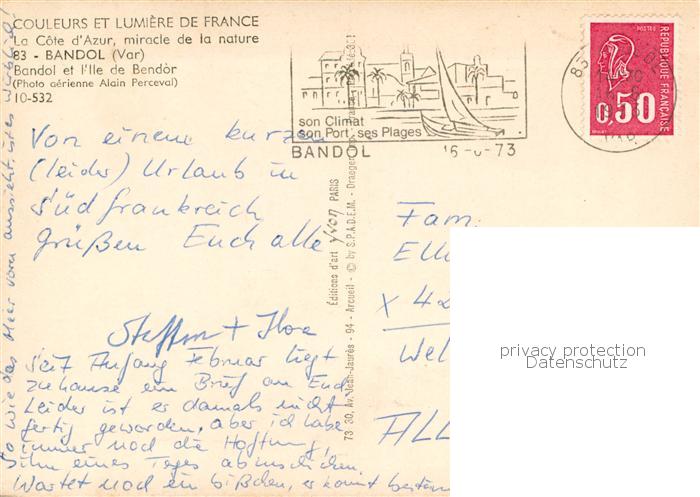 COULEURS ET LUMIÈRE DE FRANCE
La Côte d'Azur, miracle de la nature
83 - BANDOL (Var)
Bandol et l'Ile de Bendòr
(Photo aérienne Alain Perceval)
10-532
son Climat
son Port, ses Plages
BANDOL 16-6-73
POSTES
REPUBLIQUE FRANÇAISE
0,50
Von einem kurzen
(leider) Urlaub in
Südfrankreich
grüßen Euch alle
Steffen + Ilse
Seit Anfang Februar liegt
zuhause ein Brief an Euch.
Leider ist er damals nicht
fertig geworden, aber ich habe
immer noch die Hoffnung,
ihn eines Tages abzuschicken.
Wartet noch ein bißchen, er kommt bestimmt
So wie das Meer vorn aussieht, ist es wirklich!
Editions d'art yvon PARIS
73 30, Av. Jean-Jaurès - 94 - Arcueil - © by S.P.A.D.E.M. - Draeger
Fam.
Ell
x 42
Wel
ALL
privacy protection
Datenschutz